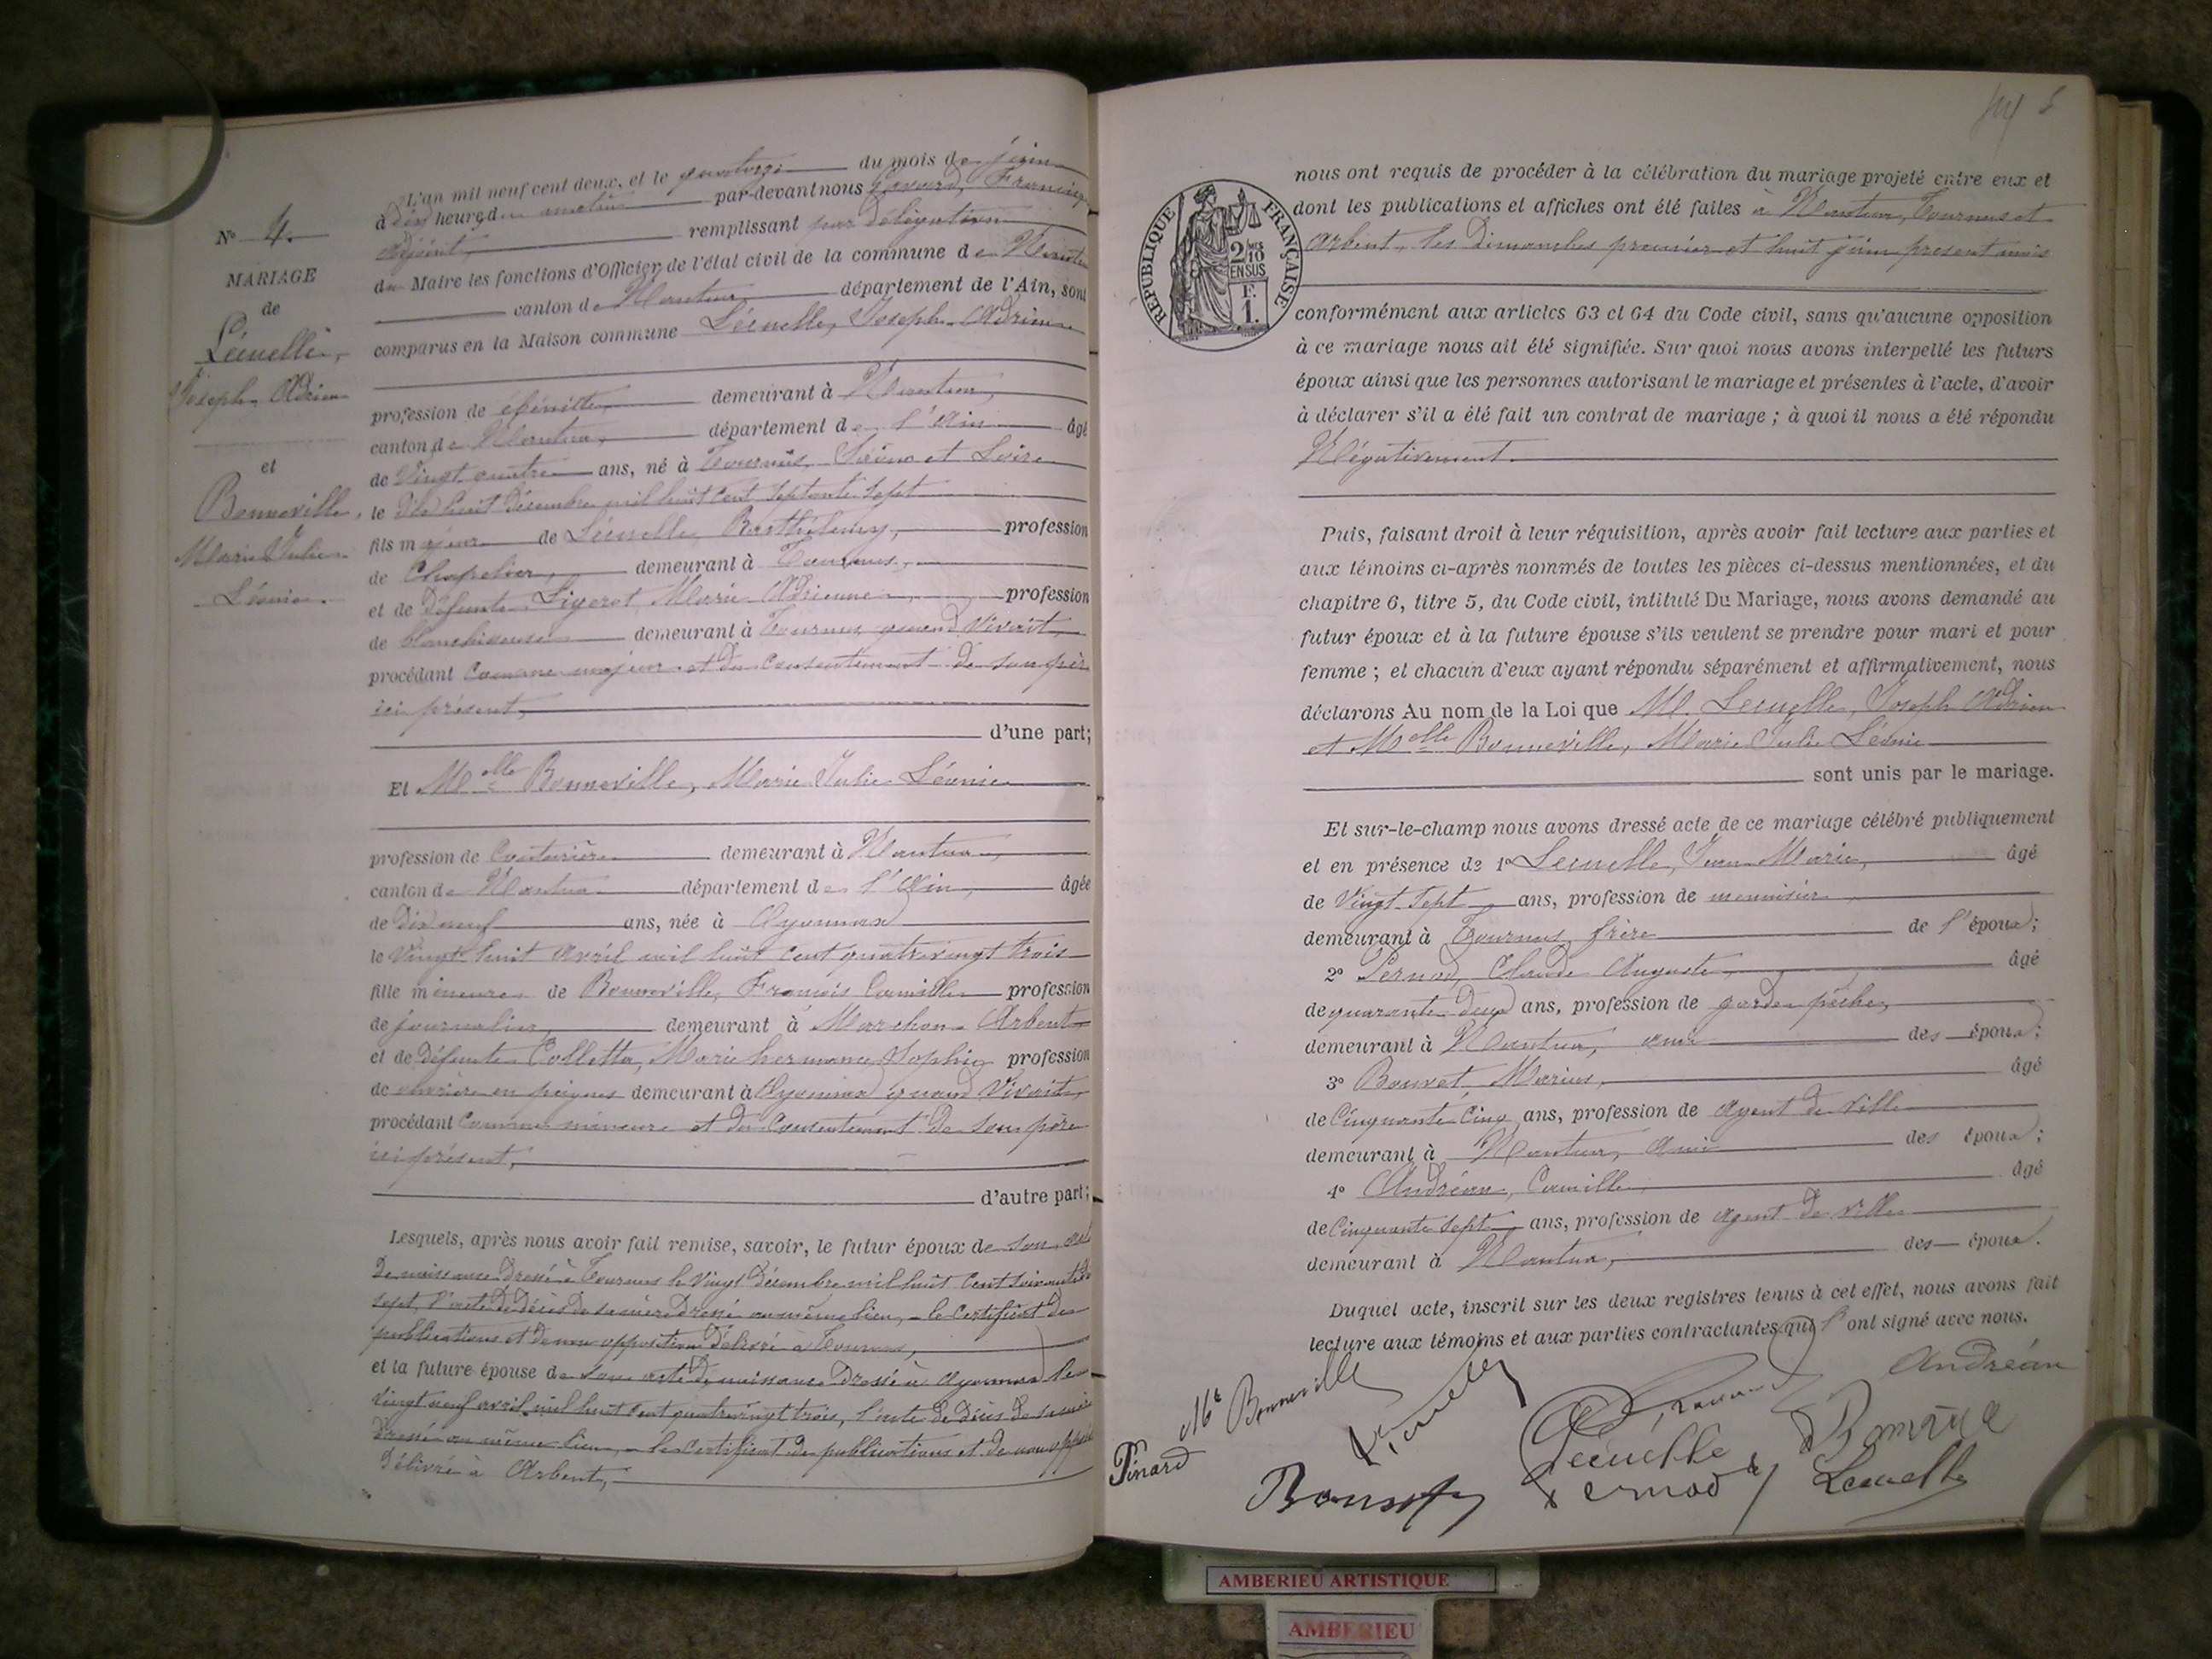 L'an mil neuf cent deux, et le quatorze du mois de juin
à dix heures du matin par-devant nous Francisque
adjoint remplissant par délégation
du Maire les fonctions d'Officier de l'état civil de la commune de Nantua
canton de Nantua département de l'Ain, sont
comparus en la Maison commune Lécuelle, Joseph Adrien
N° 4.
MARIAGE
de
Lécuelle,
Joseph Adrien
et
Bonneville,
Marie Julie
Léonie.
profession de ébéniste demeurant à Nantua,
canton de Nantua, département de l'Ain âgé
de vingt quatre ans, né à Tournus, Saône et Loire
le dix huit Décembre mil huit cent septante sept
fils majeur de Lécuelle, Barthélemy, profession
de Chapelier, demeurant à Tournus,
et de défunte Ligerot, Marie Adrienne, profession
de blanchisseuse demeurant à Tournus, quand vivait,
procédant comme majeur et du consentement de son père
ici présent,
d'une part;
Et Melle Bonneville, Marie Julie Léonie
profession de Couturière demeurant à Nantua,
canton de Nantua département de l'Ain, âgée
de dix neuf ans, née à Oyonnax
le vingt huit avril mil huit cent quatrevingt trois
fille mineure de Bonneville, François Camille profession
de journalier, demeurant à Marchon-Arbent
et de défunte Colletta, Marie hermance Sophie profession
de ouvrière en peignes demeurant à Oyonnax quand vivait,
procédant comme mineure et du consentement de son père
ici présent,
d'autre part;
Lesquels, après nous avoir fait remise, savoir, le futur époux de son acte
de naissance dressé à Tournus le vingt Décembre mil huit cent soixante dix
sept, l'acte de décès de sa mère dressé au même lieu, le certificat des
publications et de non opposition délivré à Tournus,
et la future épouse de son acte de naissance dressé à Oyonnax le
vingt neuf avril mil huit cent quatrevingt trois, l'acte de décès de sa mère
dressé au même lieu, le certificat de publications et de non opposition
délivré à Arbent,
nous ont requis de procéder à la célébration du mariage projeté entre eux et
dont les publications et affiches ont été faites à Nantua, Tournus et
Arbent, les Dimanches premier et huit juin présent mois
RÉPUBLIQUE FRANÇAISE
2/10
EN SUS
F.
1.
conformément aux articles 63 et 64 du Code civil, sans qu'aucune opposition
à ce mariage nous ait été signifiée. Sur quoi nous avons interpellé les futurs
époux ainsi que les personnes autorisant le mariage et présentes à l'acte, d'avoir
à déclarer s'il a été fait un contrat de mariage ; à quoi il nous a été répondu
Négativement.
Puis, faisant droit à leur réquisition, après avoir fait lecture aux parties et
aux témoins ci-après nommés de toutes les pièces ci-dessus mentionnées, et du
chapitre 6, titre 5, du Code civil, intitulé Du Mariage, nous avons demandé au
futur époux et à la future épouse s'ils veulent se prendre pour mari et pour
femme ; et chacun d'eux ayant répondu séparément et affirmativement, nous
déclarons Au nom de la Loi que M. Lecuelle, Joseph Adrien
et Melle Bonneville, Marie Julie Léonie
sont unis par le mariage.
Et sur-le-champ nous avons dressé acte de ce mariage célébré publiquement
et en présence de 1° Lecuelle, Jean Marie, âgé
de vingt sept ans, profession de menuisier
demeurant à Tournus frère de l'époux;
2° Pernod, Claude Auguste, âgé
de quarante deux ans, profession de garde pêche,
demeurant à Nantua, ami des époux;
3° Bouvet, Marius, âgé
de Cinquante cinq ans, profession de agent de ville
demeurant à Nantua, ami des époux;
4° Andréan, Camille, âgé
de Cinquante sept ans, profession de agent de ville
demeurant à Nantua, des époux.
Duquel acte, inscrit sur les deux registres tenus à cet effet, nous avons fait
lecture aux témoins et aux parties contractantes qui l'ont signé avec nous.
Andréan
Me Bonneville
Pinard
Lecuelle
Pernod
Lecuelle
AMBERIEU ARTISTIQUE
AMBERIEU